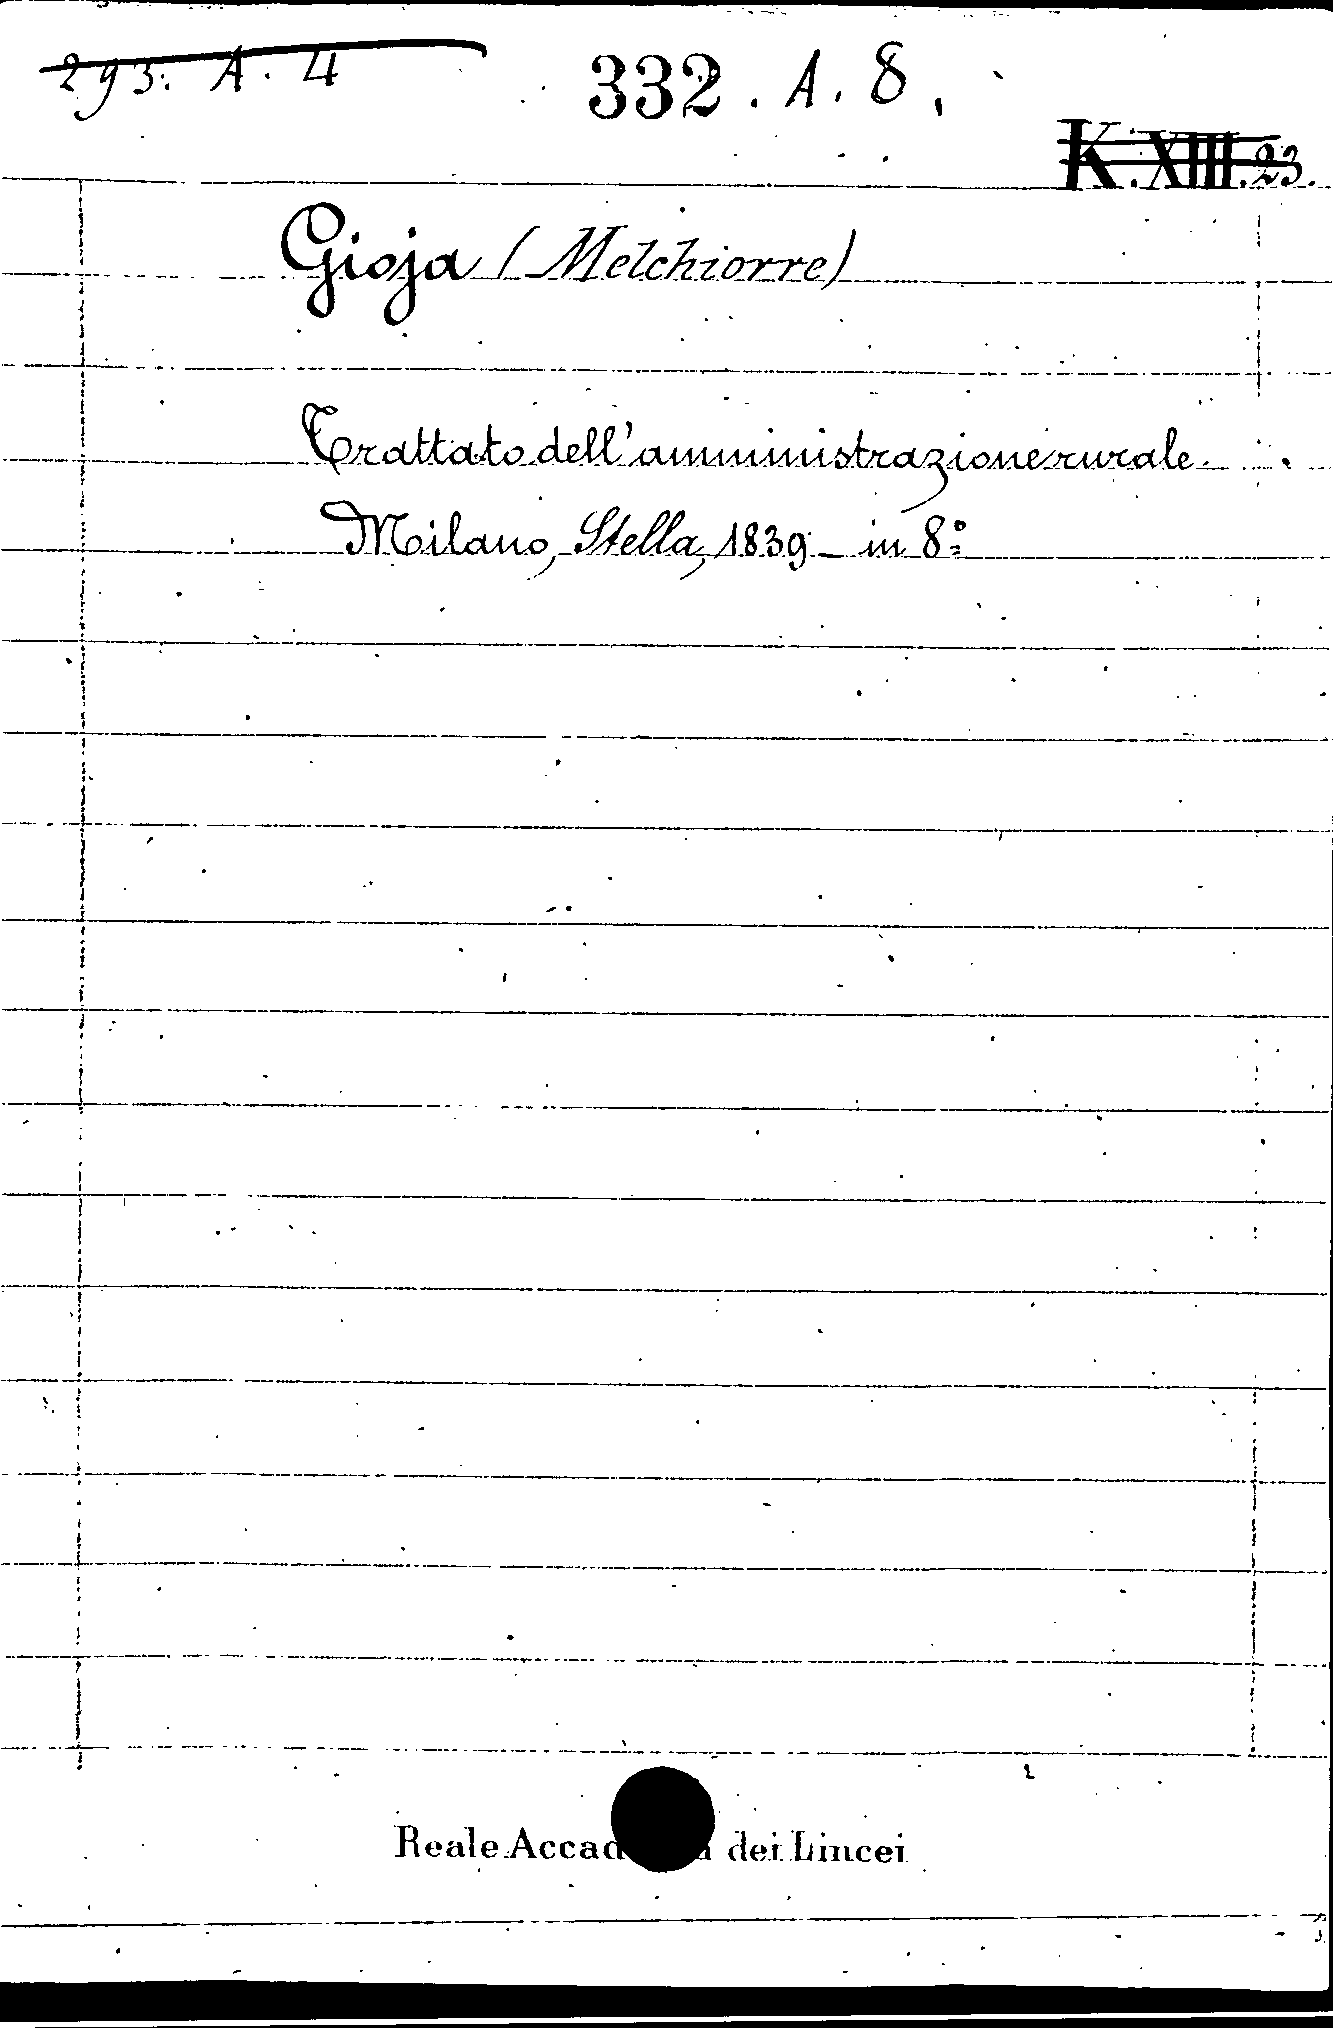 293. A. 4
332. A. 8.
K. XIII. 23.
Gioja (Melchiorre)
Trattato dell'amministrazione rurale.
Milano, Stella, 1839 - in 8º
Reale dei Lincei